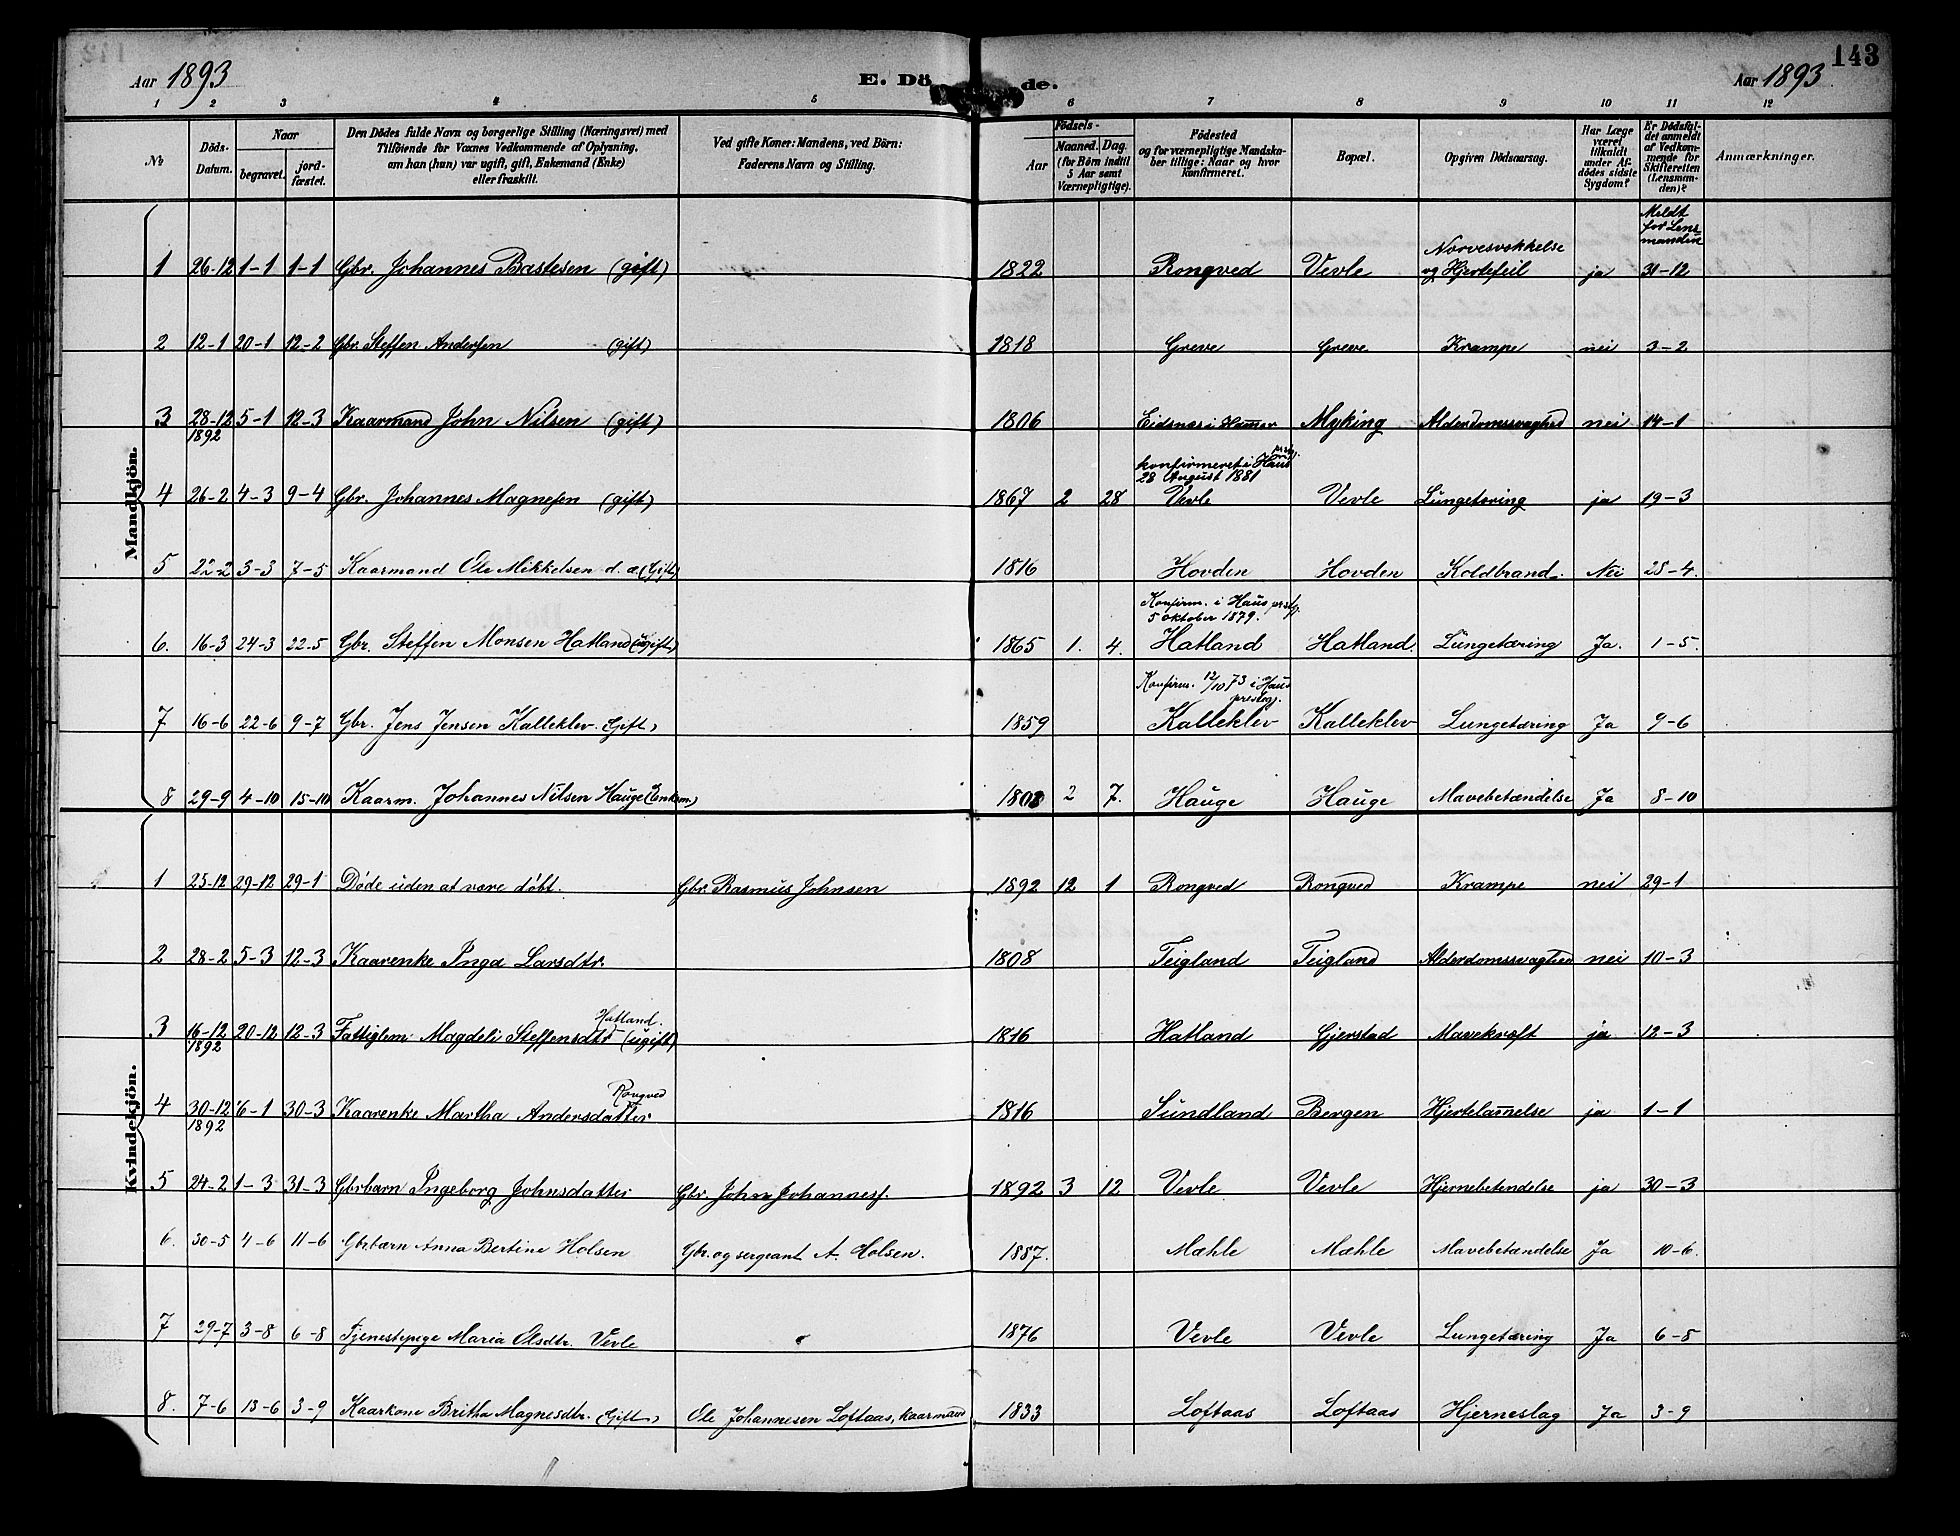 143
Aar 1893 E. Dö de. Aar 1893
1 2 3 4 5 6 7 8 9 10 11 12
No Döds-Datum. Naar begravet. jordfæstet. Den Dödes fulde Navn og borgerlige Stilling (Næringsvei) med Tilföiende for Voxnes Vedkommende af Oplysning, om han (hun) var ugift, gift, Enkemand (Enke) eller fraskilt. Ved gifte Koner: Mandens, ved Börn: Faderens Navn og Stilling. Födsels- Aar Maaned. Dag. (for Börn indtil 5 Aar samt Værnepligtige). Födested og for værnepligtige Mandskaber tillige: Naar og hvor Konfirmeret. Bopæl. Opgiven Dödsaarsag. Har Læge været tilkaldt under Afdödes sidste Sygdom? Er Dödsfaldet anmeldt af Vedkommende for Skifteretten (Lensmanden)? Anmærkninger.
Mandkjön.
Meldt for Lensmanden
1 26-12 1-1 1-1 Gbr. Johannes Bastesen (gift) 1822 Rongved Vevle Nervesvekkelse og Hjertefeil ja 31-12
2 12-1 20-1 12-2 Gbr. Steffen Andersen (gift) 1818 Greve Greve Krampe nei 3-2
3 28-12 1892 5-1 12-3 Kaarmand John Nilsen (gift) 1806 Eidsnæs i Hammer Myking Alderdomssvaghed nei 14-1
konfirmeret i Haus prstg. 28 August 1881
4 26-2 4-3 9-4 Gbr. Johannes Magnesen (gift) 1867 2 28 Vevle Vevle Lungetæring ja 19-3
5 22-2 3-3 7-5 Kaarmand Ole Mikkelsen d. æ (Gift) 1816 Hovden Hovden Koldbrand. Nei 25-4.
Konfirm. i Haus prstg. 5 oktober 1879.
6. 16-3 24-3 22-5 Gbr. Steffen Monsen Hatland (ugift) 1865 1. 4. Hatland Hatland. Lungetæring Ja. 1-5.
Konfirm. 12/10 73 i Haus prestegj.
7 16-6 22-6 9-7 Gbr. Jens Jensen Kalleklev. (Gift) 1859 Kalleklev Kalleklev Lungetæring Ja 9-6
8 29-9 4-10 15-10 Kaarm. Johannes Nilsen Hauge (Enkem.) 2 7. Hauge Hauge Mavebetændelse Ja 8-10
Kvindekjön.
1 25-12 29-12 29-1 Døde uden at være døbt. Gbr. Rasmus Johnsen 1892 12 1 Rongved Rongved Krampe nei 29-1
2 28-2 5-3 12-3 Kaarenke Inga Larsdtr. 1808 Teigland Teigland Alderdomssvaghed nei 10-3
3 16-12 1892 20-12 12-3 Fattiglem Magdeli Steffensdtr Hatland (ugift) 1816 Hatland Gjerstad Mavekræft ja 12-3
4 30-12 1892 6-1 30-3 Kaarenke Martha Andersdatter Rongved 1816 Sundland Bergen Hjertelamelse ja 1-1
5 24-2 1-3 31-3 Gbrbarn Ingeborg Johnsdatter Gbr. John Johannesf. 1892 3 12 Vevle Vevle Hjernebetendelse ja 30-3
6. 30-5 4-6 11-6 Gbrbarn Anna Bertine Holsen Gbr. og sergeant A. Holsen. 1887. Mæhle Mæhle Mavebetændelse Ja 10-6.
7 29-7 3-8 6-8 Tjenestepige Maria Olsdtr. Vevle 1876 Vevle Vevle Lungetæring Ja 6-8
8. 7-6 13-6 3-9 Kaarkone Britha Magnesdtr. (Gift) Ole Johannesen Loftaas, kaarmand 1833 Loftaas Loftaas Hjerneslag Ja 3-9